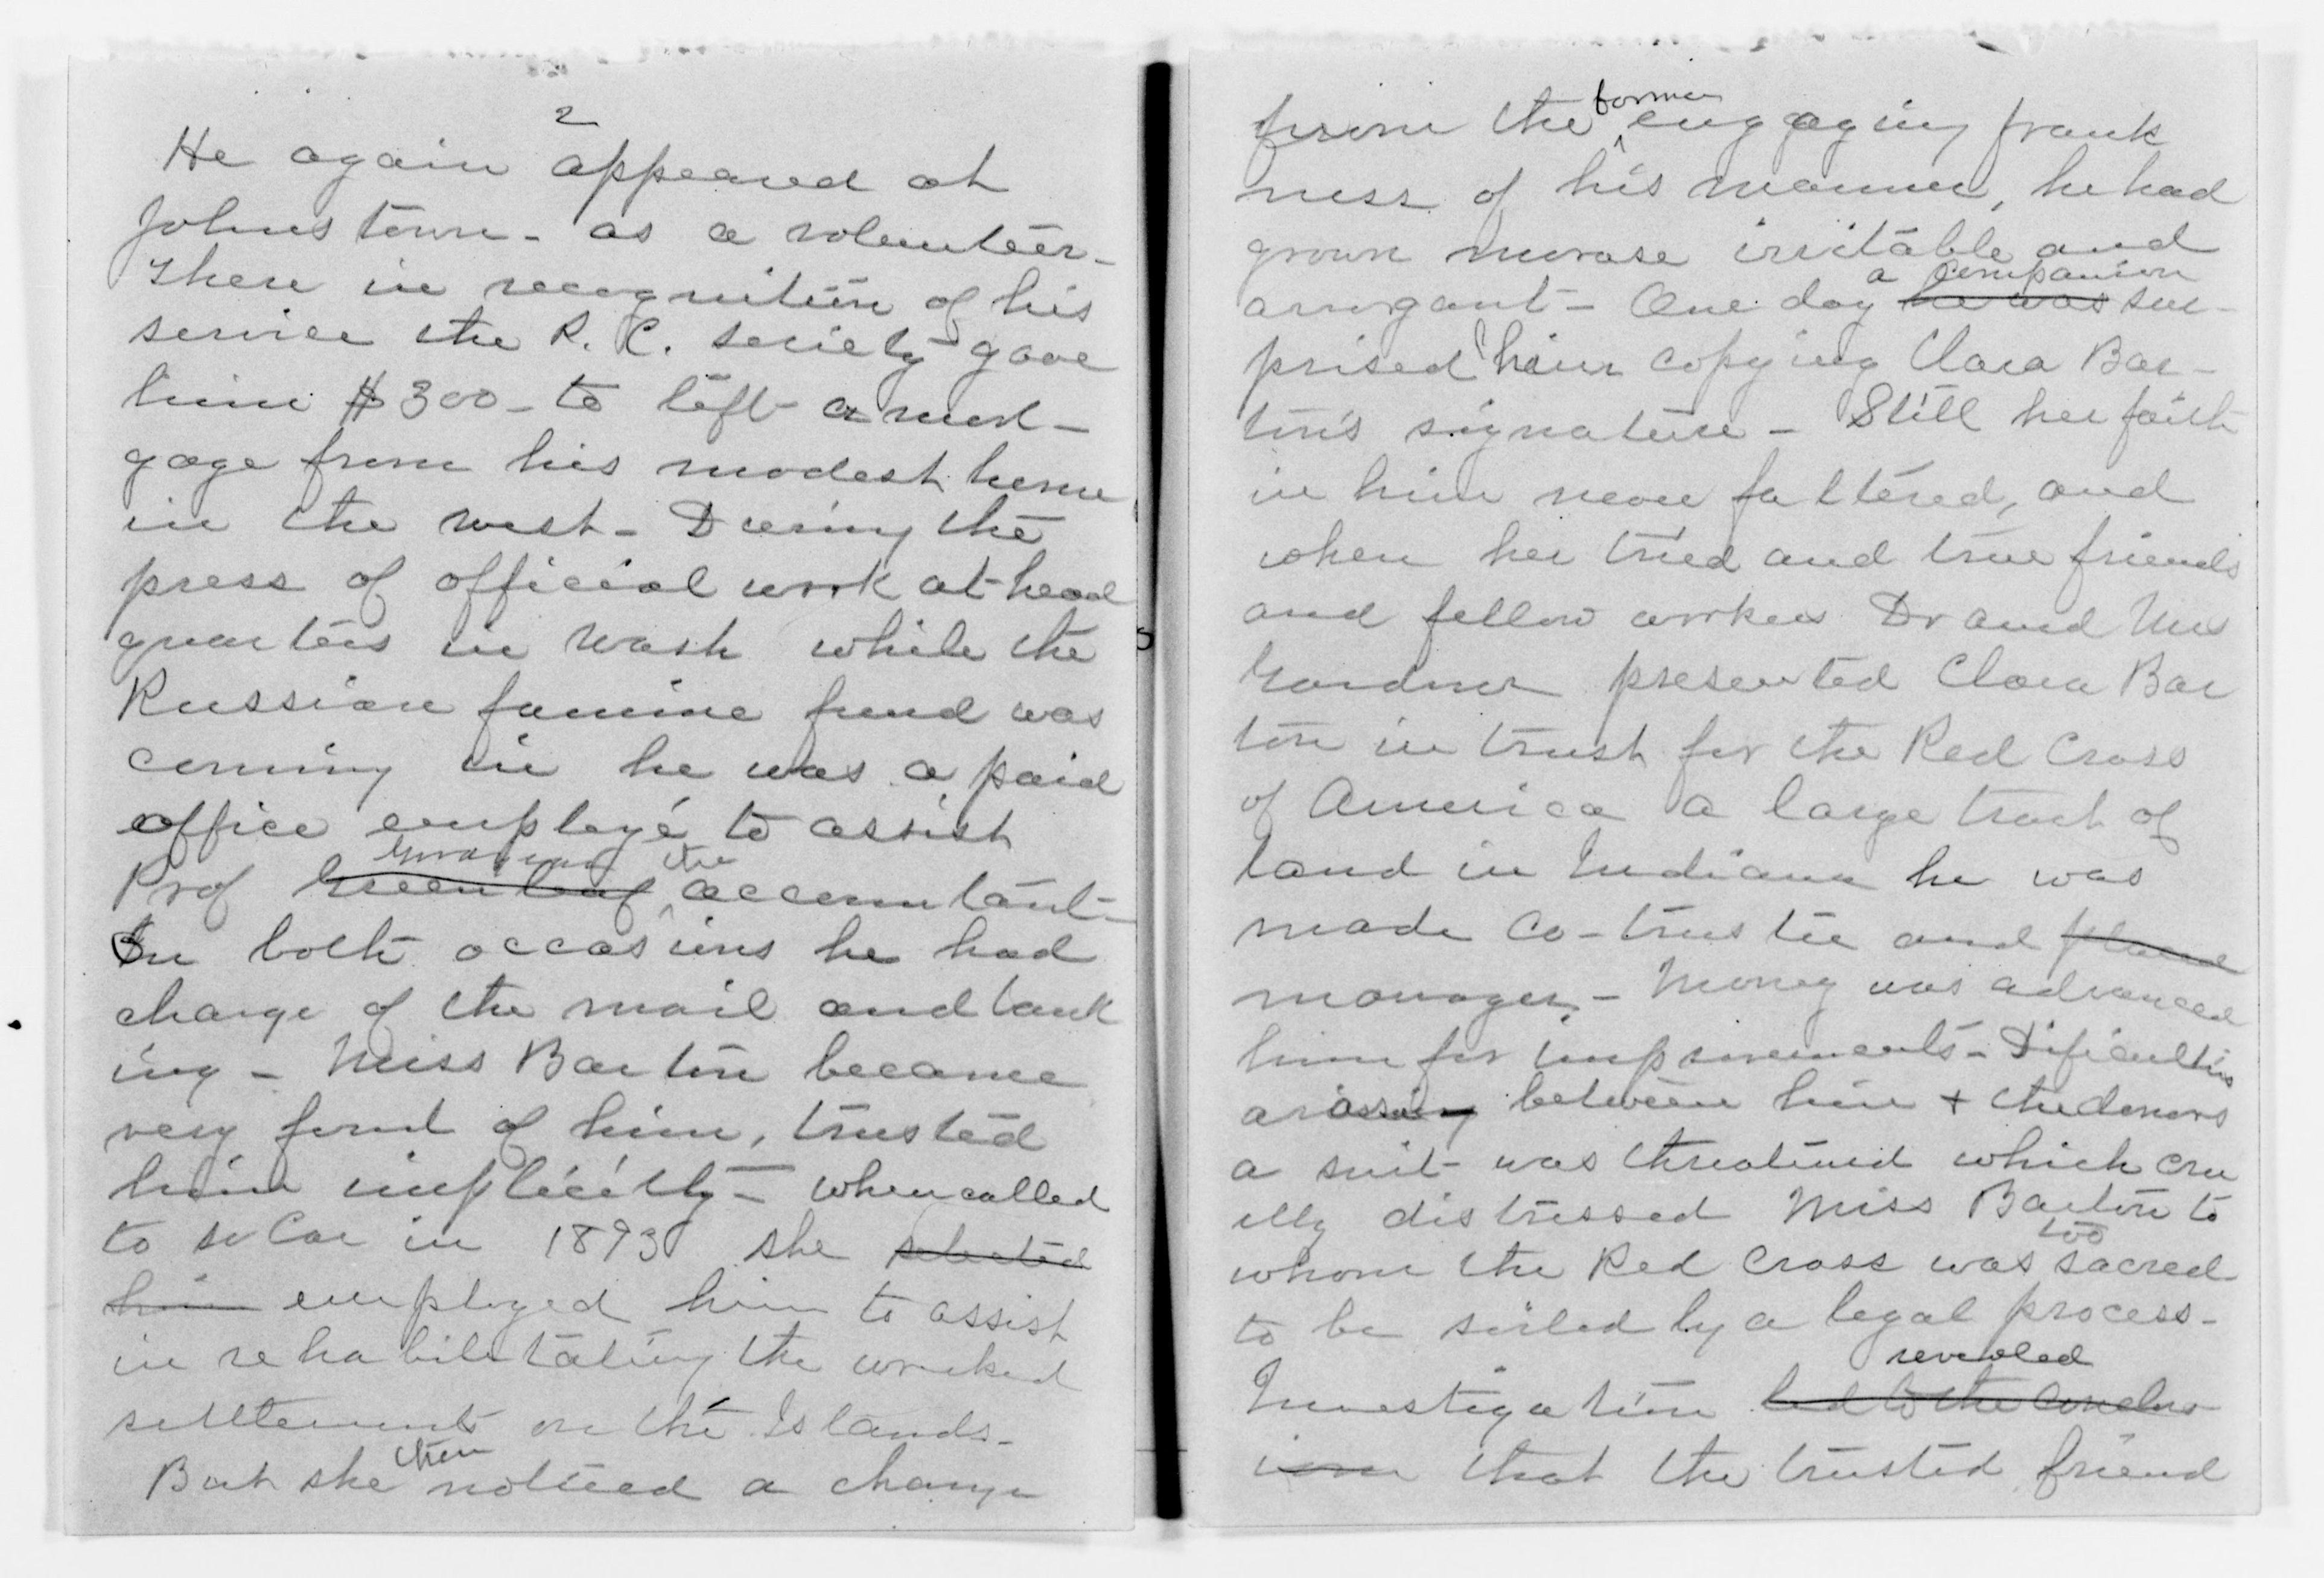 2
He again appeared at
Johnstown - as a volunteer -
There in recognition of his
service the R. C. society gave
him $300 - to lift a mort-
gage from his modest home
in the west - During the
press of official work at head
quarters in Wash while the
Russian famine fund was
coming in he was a paid
office employé to assist
the
Prof Greenleaf accountant -
On both occasions he had
charge of the mail and bank
ing - Miss Barton became
very fond of him, trusted
him implicitly - when called
to So Car in 1893 she selected
him employed him to assist
in rehabilitating the wrecked
settlements on the Islands -
then
But she noticed a change
former
from the engaging frank
ness of his manner, he had
grown morose irritable and
a companion
arrogant - One day he was sur-
prised him copying Clara Bar-
ton's signature - Still her faith
in him never faltered, and
when her tried and true friends
and fellow workers Dr and Mrs
Gardner presented Clara Bar
ton in trust for the Red Cross
of America a large tract of
land in Indiana he was
made co-trustee and placed
manager - Money was advanced
him for improvements - Dificulties
arossing between him + the donors
a suit was threatened which cru
elly distressed Miss Barton to
too
whom the Red Cross was sacred
to be soiled by a legal process -
revealed
Investigation led to the conclus
ion that the trusted friend